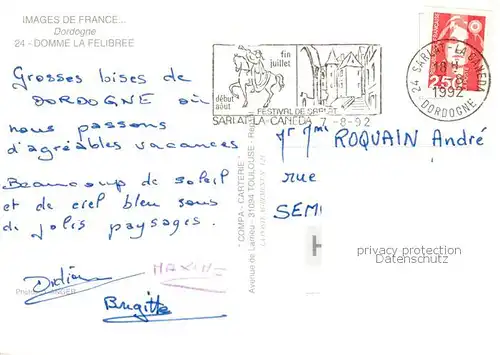 IMAGES DE FRANCE...
Dordogne
24 - DOMME LA FELIBREE
Grosses bises de
DORDOGNE où
nous passons
d'agréables vacances
Beaucoup de soleil
et de ciel bleu sous
de jolis paysages.
MAXIME
Brigitte
fin
juillet
début
août
FESTIVAL DE SARLAT
SARLAT-LA-CANEDA 7-8-92
24 SARLAT-LA-CANEDA
18 H
7-8
1992
DORDOGNE
2,50
Mr Mme ROQUAIN André
rue
SEM
"COMPA - CARTERIE"
Avenue de Larrieu - 31094 TOULOUSE
privacy protection
Datenschutz